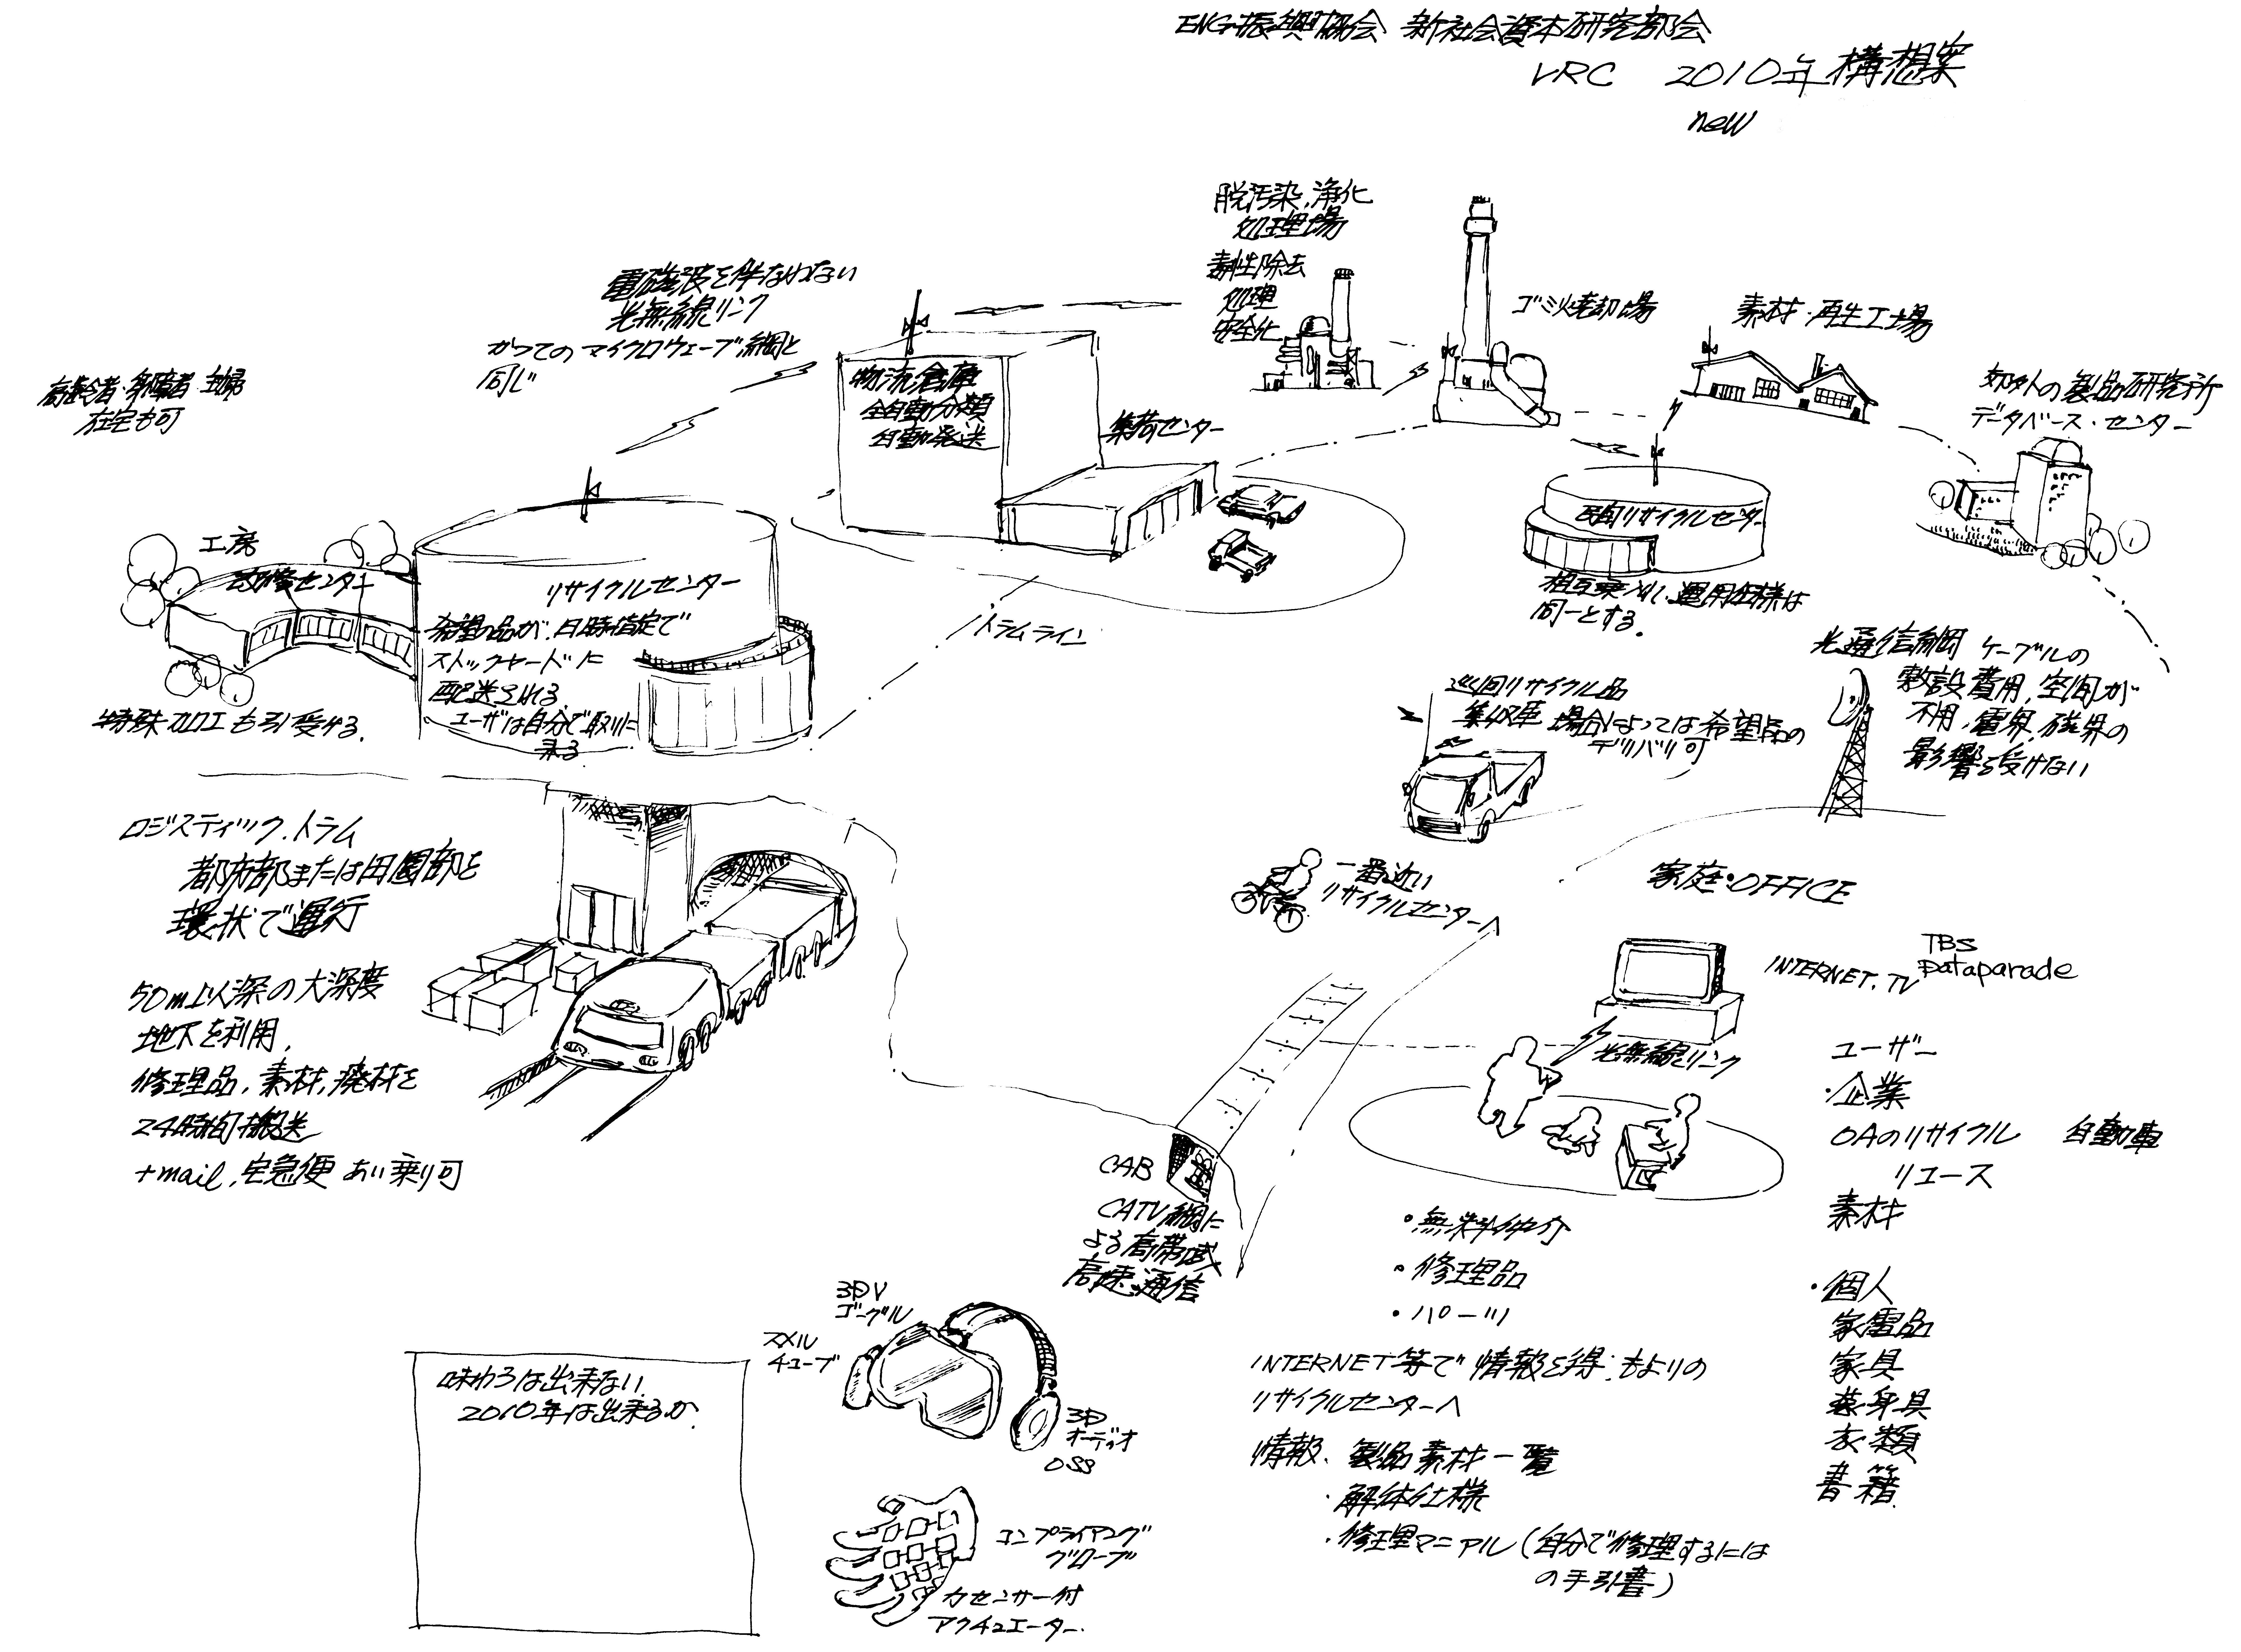 ENG振興協会 新社会資本研究部会
VRC 2010年 構想案
new
脱汚染,浄化
処理場
毒性除去
処理
安全化
ゴミ焼却場
素材・再生工場
郊外の製品研究所
データベース・センター
電磁波を伴なわない
光無線リンク
かつてのマイクロウェーブ網と
同じ
高齢者・身障者・主婦
在宅も可
物流倉庫
全自動分類
自動発送
集荷センター
工房
改修センター
特殊加工も引受ける.
リサイクルセンター
希望の品が,日時指定で
ストックヤードに
配送される
ユーザは自分で取りに
来る
トラムライン
民間リサイクルセンター
相互乗入れ,運用仕様は
同一とする.
光通信網 ケーブルの
敷設費用,空間が
不用,電界,磁界の
影響を受けない
巡回リサイクル品
集収車 場合によっては希望品の
デリバリ可
ロジスティック.トラム
都市部または田園部を
環状で運行
50m以深の大深度
地下を利用,
修理品,素材,廃材を
24時間搬送
+mail,宅急便 あい乗り可
一番近い
リサイクルセンターへ
家庭・OFFICE
INTERNET.TV
TBS
Dataparade
光無線リンク
ユーザー
・企業
OAのリサイクル 自動車
リユース
素材
・個人
家電品
家具
装身具
衣類
書籍
CAB
CATV網に
よる高帯域
高速通信
・無料仲介
・修理品
・パーツ
INTERNET等で情報を得,もよりの
リサイクルセンターへ
情報.製品素材一覧
・解体仕様
・修理マニアル(自分で修理するには
の手引書)
3DV
ゴーグル
スメル
チューブ
3D
オーディオ
OSS
味わうは出来ない
2010年は出来るか
コンプライアング
グローブ
力センサー付
アクチュエーター.